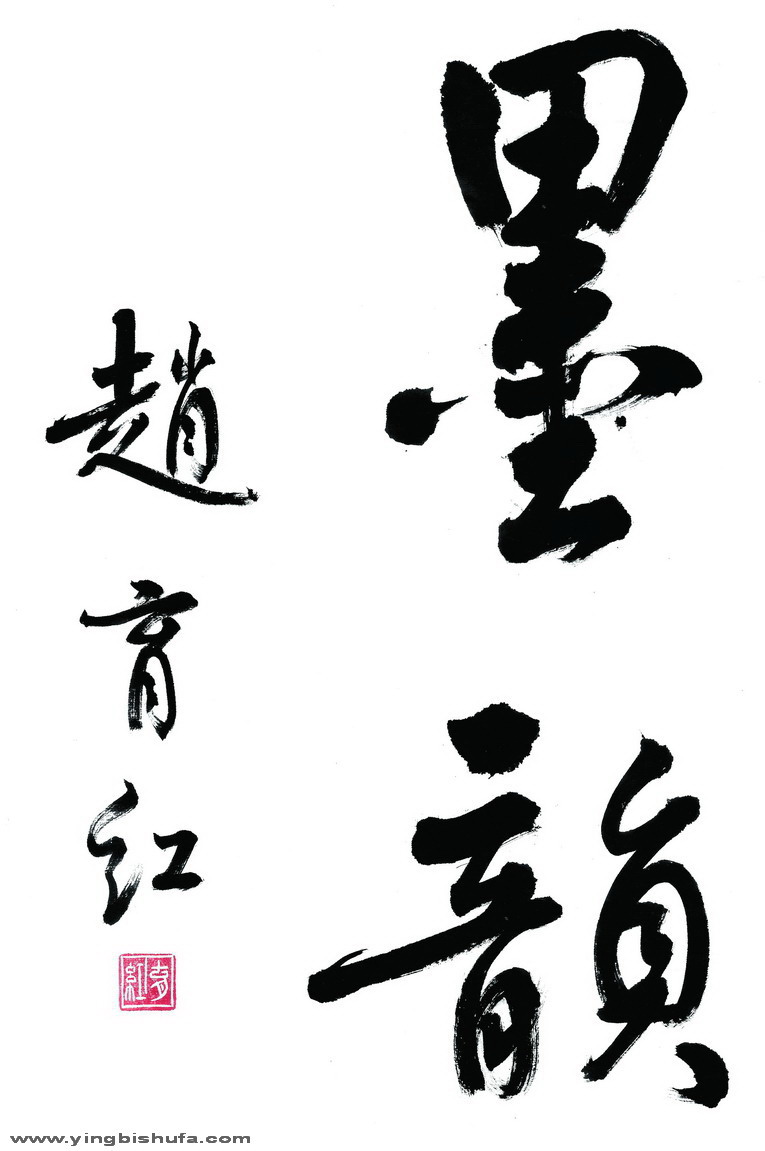 墨韻
趙育红
育紅
www.yingbishufa.com